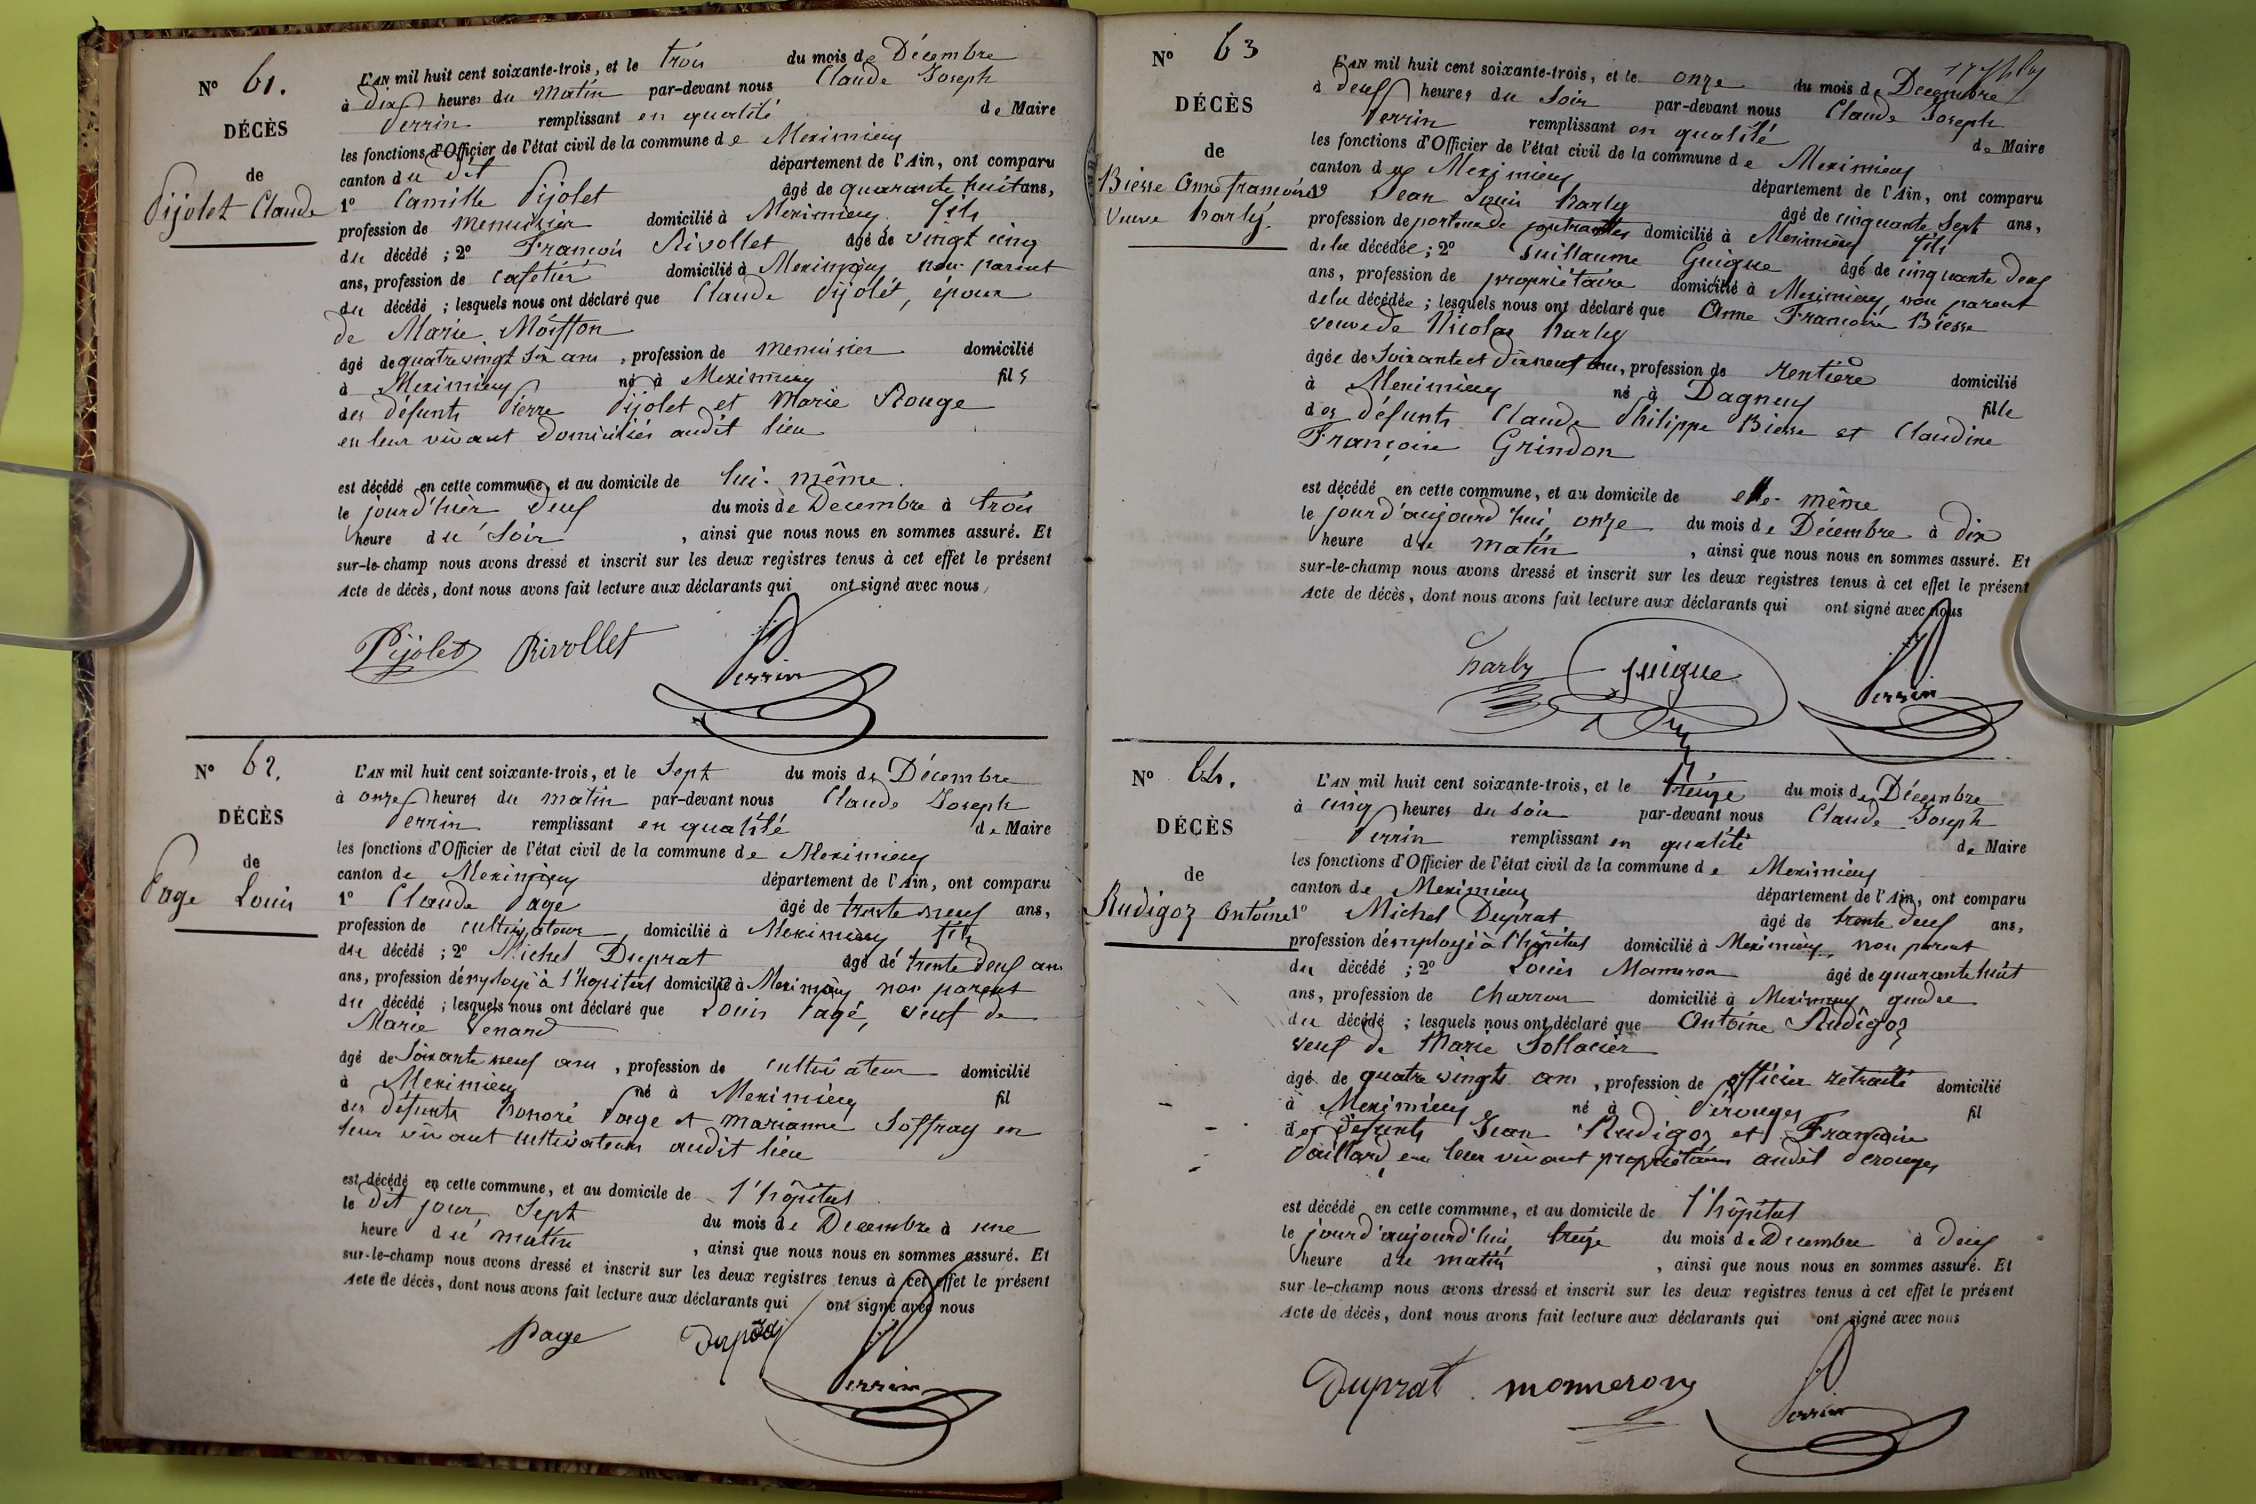 N° 61.
DÉCÈS
de
Pijolet Claude
L'AN mil huit cent soixante-trois, et le trois du mois de Décembre
à dix heures du matin par-devant nous Claude Joseph
Perrin remplissant en qualité de Maire
les fonctions d'Officier de l'état civil de la commune de Meximieux
canton du dit département de l'Ain, ont comparu
1° Camille Pijolet âgé de quarante huit ans,
profession de menuisier domicilié à Meximieux fils
du décédé ; 2° François Rivollet âgé de vingt cinq
ans, profession de cafetier domicilié à Meximieux non parent
du décédé ; lesquels nous ont déclaré que Claude Pijolet, époux
de Marie Moiffon
âgé de quatre vingt six ans, profession de menuisier domicilié
à Meximieux né à Meximieux fils
des défunts Pierre Pijolet et Marie Rouge
en leur vivant domiciliés audit lieu
est décédé en cette commune, et au domicile de lui-même.
le jour d'hier deux du mois de Décembre à trois
heure du soir, ainsi que nous nous en sommes assuré. Et
sur-le-champ nous avons dressé et inscrit sur les deux registres tenus à cet effet le présent
Acte de décès, dont nous avons fait lecture aux déclarants qui ont signé avec nous,
Pijolet Rivollet Perrin
N° 62.
DÉCÈS
de
Page Louis
L'AN mil huit cent soixante-trois, et le sept du mois de Décembre
à onze heures du matin par-devant nous Claude Joseph
Perrin remplissant en qualité de Maire
les fonctions d'Officier de l'état civil de la commune de Meximieux
canton de Meximieux département de l'Ain, ont comparu
1° Claude Page âgé de trente neuf ans,
profession de cultivateur domicilié à Meximieux fils
du décédé ; 2° Michel Duprat âgé de trente deux ans
ans, profession d'employé à l'hopital domicilié à Meximieux non parent
du décédé ; lesquels nous ont déclaré que Louis Page, veuf de
Marie Venand
âgé de soixante neuf ans, profession de cultivateur domicilié
à Meximieux né à Meximieux fil
des défunts honoré Page et marianne Soffray en
leur vivant cultivateurs audit lieu
est décédé en cette commune, et au domicile de l'hôpital
le dit jour sept du mois de Décembre à une
heure du matin, ainsi que nous nous en sommes assuré. Et
sur-le-champ nous avons dressé et inscrit sur les deux registres tenus à cet effet le présent
Acte de décès, dont nous avons fait lecture aux déclarants qui ont signé avec nous
page Duprat Perrin
N° 63
DÉCÈS
de
Biesse Anne françoise
Veuve harly.
L'AN mil huit cent soixante-trois, et le onze du mois de Décembre
à deux heures du soir par-devant nous Claude Joseph
Perrin remplissant en qualité de Maire
les fonctions d'Officier de l'état civil de la commune de Meximieux
canton de Meximieux département de l'Ain, ont comparu
1° Jean Louis harly âgé de cinquante sept ans,
profession de porteur de contraintes domicilié à Meximieux fils
de la décédée ; 2° Guillaume Guigue âgé de cinquante deux
ans, profession de propriétaire domicilié à Meximieux non parent
de la décédée ; lesquels nous ont déclaré que Anne Françoise Biesse
veuve de Nicolas harly
âgée de soixante et dix neuf ans, profession de rentière domicilié
à Meximieux né à Dagneux fille
des défunts Claude Philippe Biesse et Claudine
Françoise Grindon
est décédé en cette commune, et au domicile de elle-même
le jour d'aujourd'hui onze du mois de Décembre à dix
heure du matin, ainsi que nous nous en sommes assuré. Et
sur-le-champ nous avons dressé et inscrit sur les deux registres tenus à cet effet le présent
Acte de décès, dont nous avons fait lecture aux déclarants qui ont signé avec nous
harly guigue Perrin
N° 64.
DÉCÈS
de
Rudigoz Antoine
L'AN mil huit cent soixante-trois, et le treize du mois de Décembre
à cinq heures du soir par-devant nous Claude Joseph
Perrin remplissant en qualité de Maire
les fonctions d'Officier de l'état civil de la commune de Meximieux
canton de Meximieux département de l'Ain, ont comparu
1° Michel Duprat âgé de trente deux ans,
profession d'employé à l'hôpital domicilié à Meximieux non parent
du décédé ; 2° Louis Momeron âgé de quarante huit
ans, profession de charron domicilié à Meximieux gendre
du décédé ; lesquels nous ont déclaré que Antoine Rudigoz
veuf de Marie Sollacier
âgé de quatre vingts ans, profession de officier retraité domicilié
à Meximieux né à Pérouges fil
des défunts Jean Rudigoz et Françoise
Paillard, en leur vivant propriétaires audit Perouges
est décédé en cette commune, et au domicile de l'hôpital
le jour d'aujourd'hui treize du mois de Décembre à deux
heure du matin, ainsi que nous nous en sommes assuré. Et
sur-le-champ nous avons dressé et inscrit sur les deux registres tenus à cet effet le présent
Acte de décès, dont nous avons fait lecture aux déclarants qui ont signé avec nous
Duprat monneron Perrin